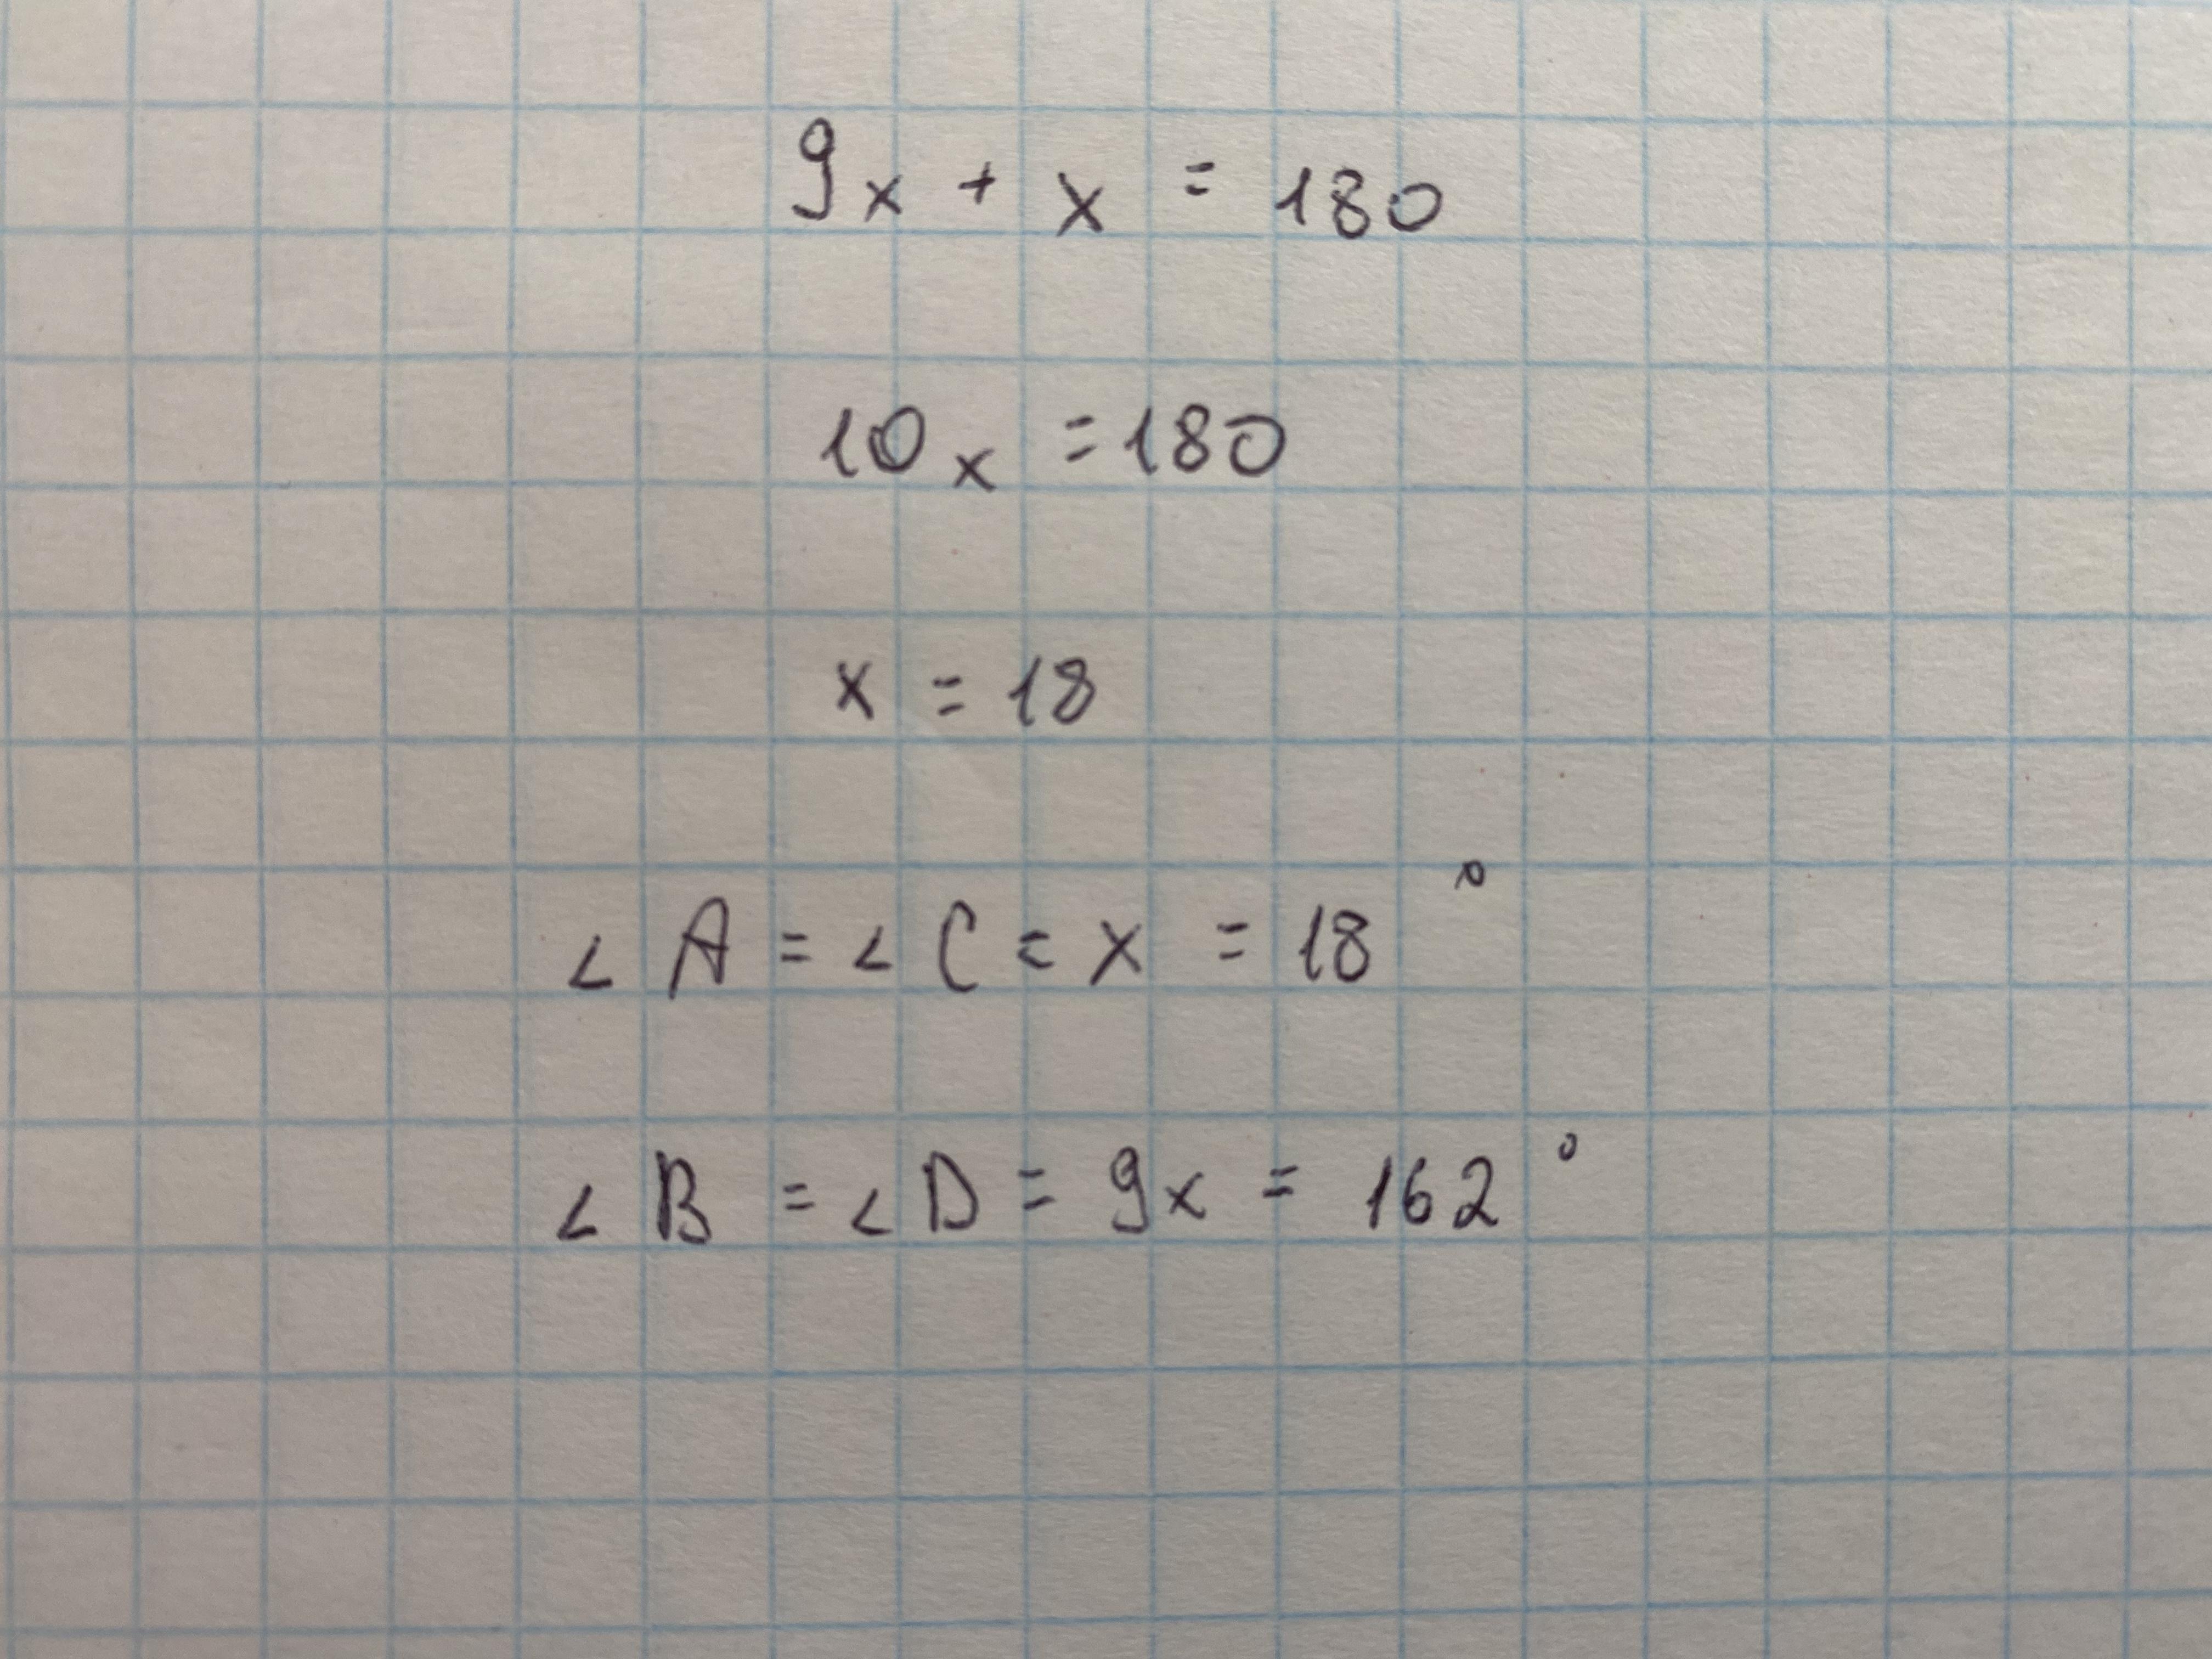 9x + x = 180
10x = 180
x = 18
∠A = ∠C = x = 18°
∠B = ∠D = 9x = 162°